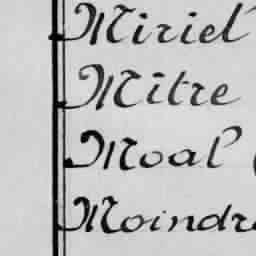 Miriel
Mitre
Moal (
Moindre